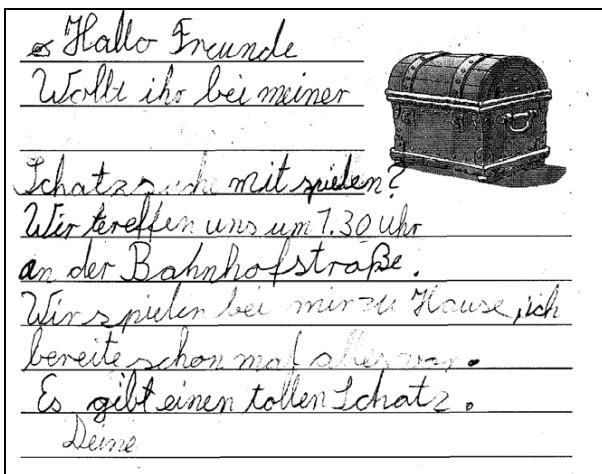 Hallo Freunde
Wollt ihr bei meiner
Schatzsuche mit spielen?
Wir tereffen uns um 1.30 Uhr
an der Bahnhofstraße.
Wir spielen bei mir zu Hause, ich
bereite schon mal alles vor.
Es gibt einen tollen Schatz.
Deine